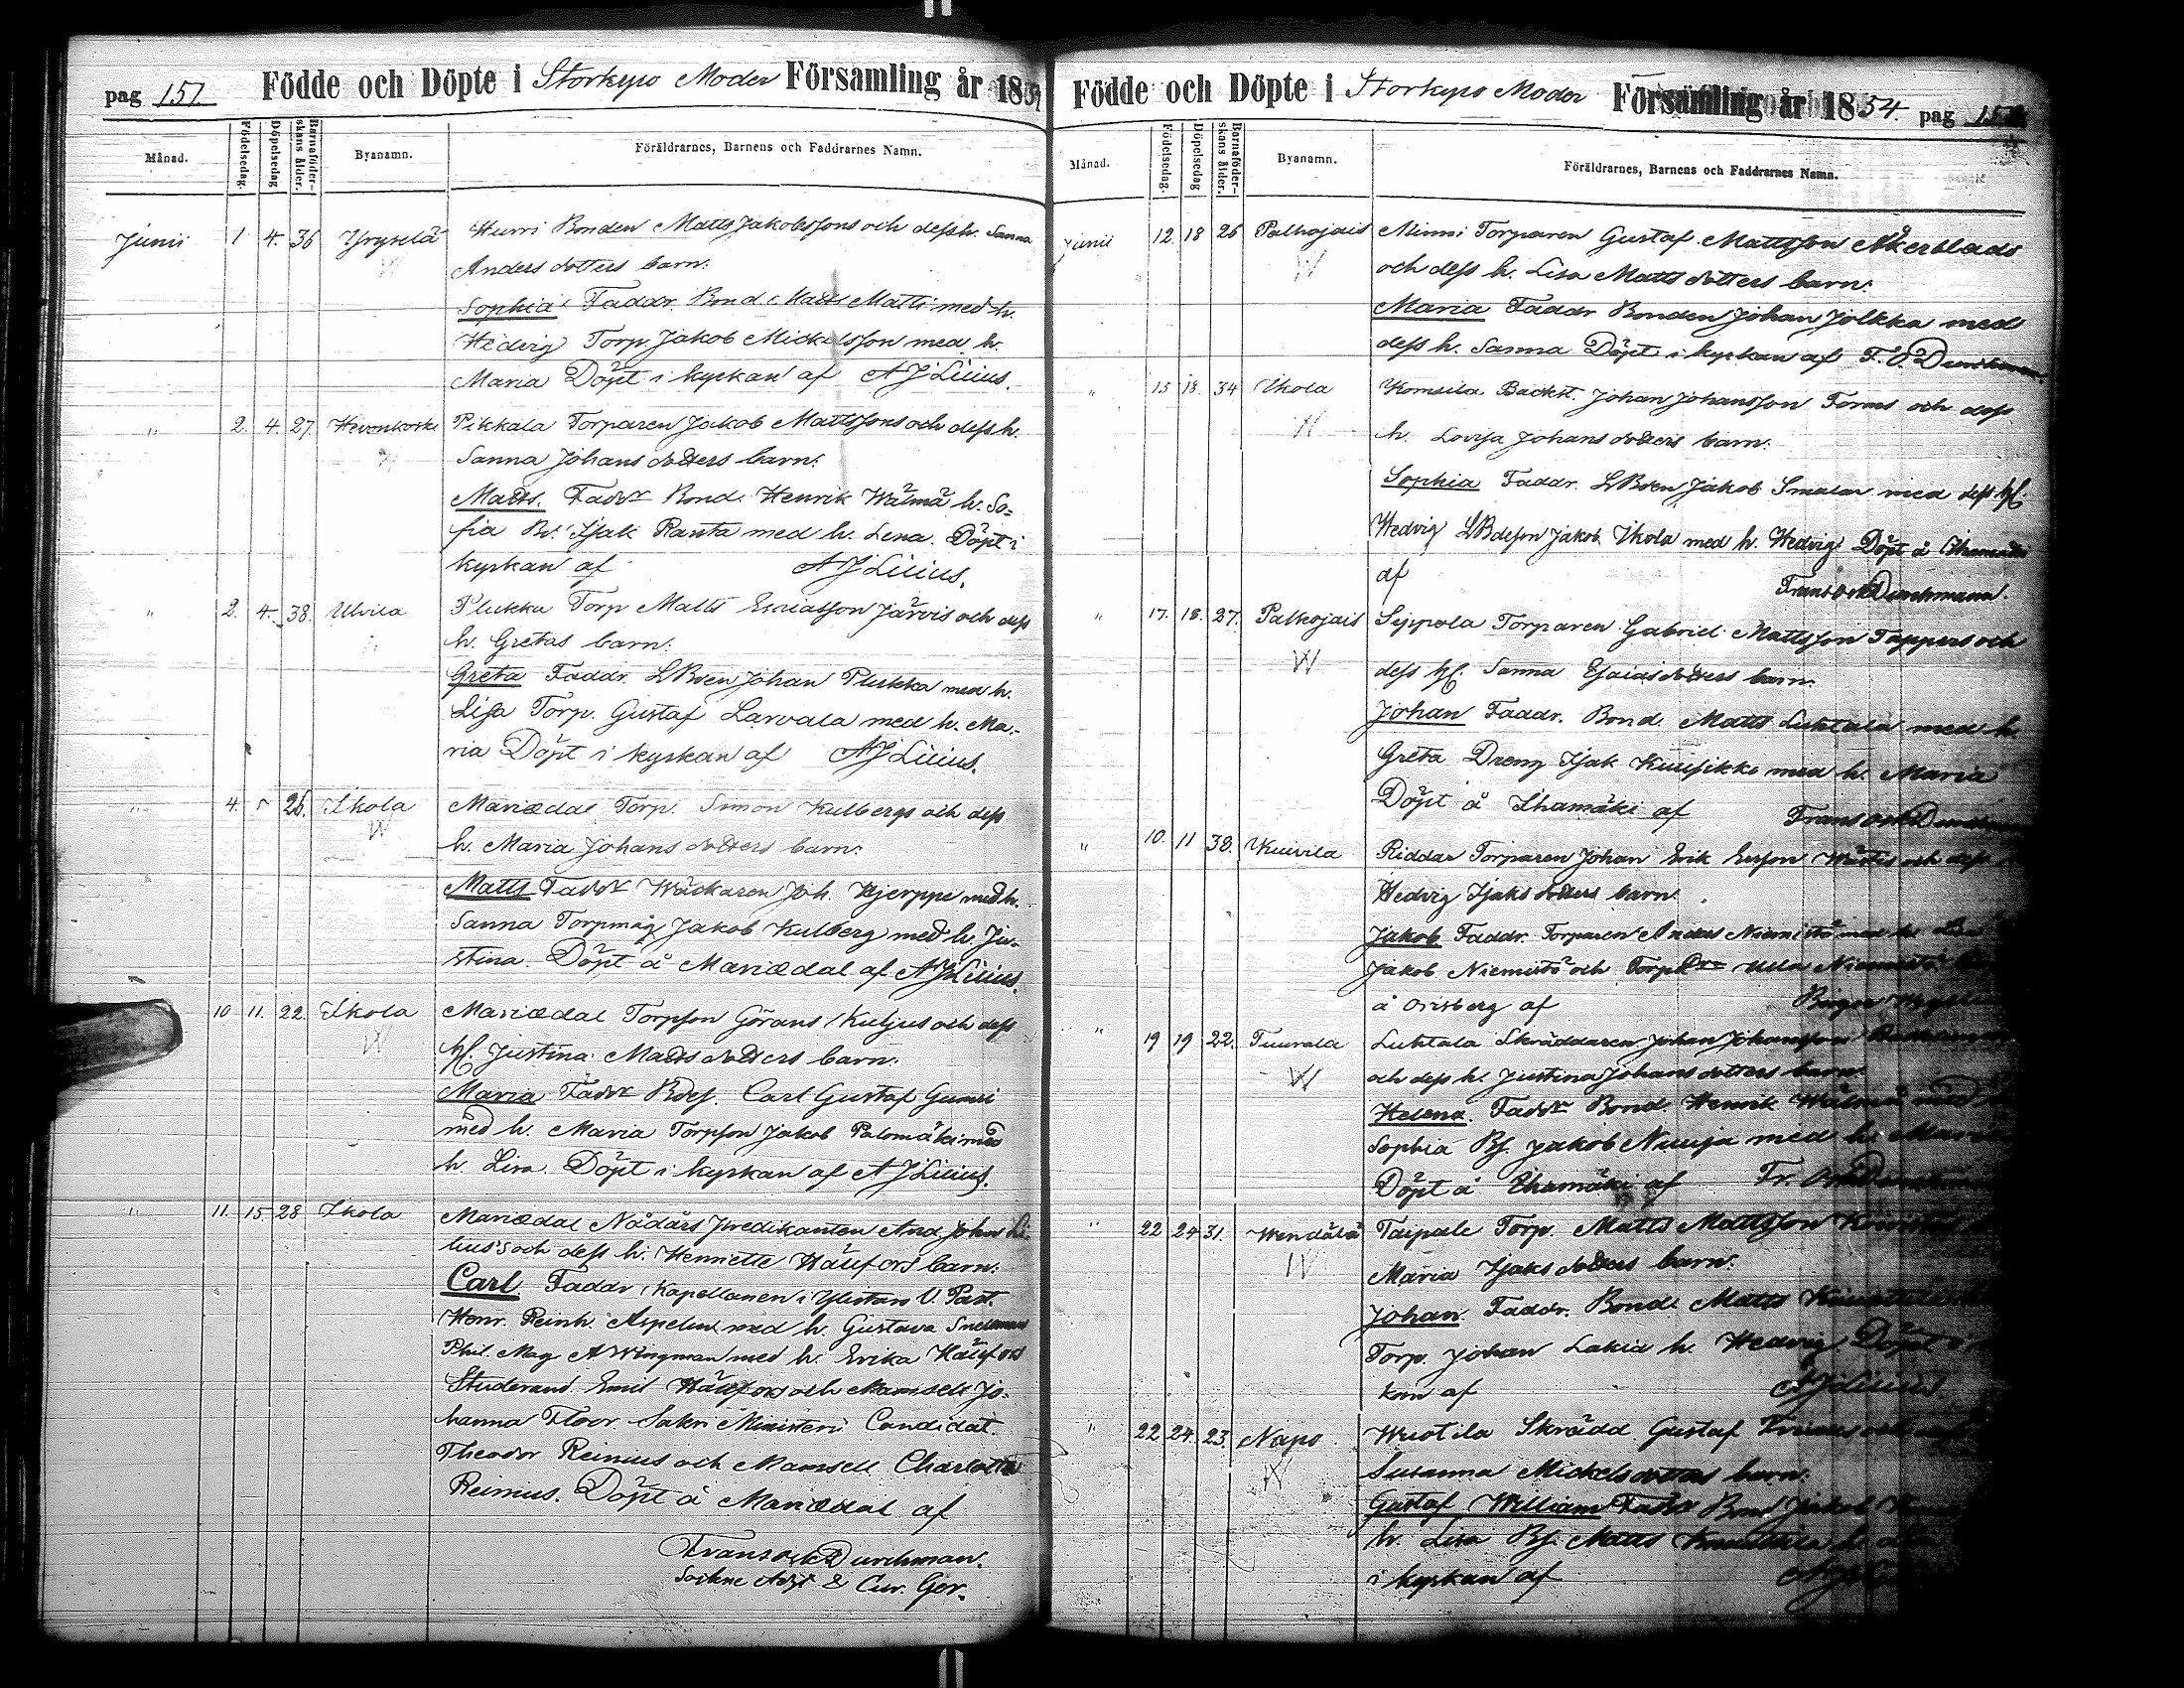 pag 151 Födde och Döpte i Storkyro Moder Församling år 1854
Månad. Födelsedag. Döpelsedag Barnaföderskans ålder. Byanamn. Föräldrarnes, Barnens och Faddrarnes Namn.
Junii 1 4. 36 Yryselä Hurri Bonden Matts Jakobssons och dess h. Sanna
Anders dotters barn.
Sophia Faddr. Bond. Matts Matti med h.
Hedvig Torp. Jakob Mickelsson med h.
Maria Döpt i kyrkan af A J Lilius.
" 2. 4. 27. Hevonkoski Pikkala Torparen Jakob Mattssons och dess h.
Sanna Johans dotters barn.
Matts. Faddr Bond. Henrik Wälmä h. So=
fia Bs. Isak Ranta med h. Lena. Döpt i
kyrkan af A J Lilius.
" 2. 4. 38. Ulvila Plukka Torp Matts Esaiasson Järvis och dess
h. Gretas barn.
Greta Faddr. LBoen Johan Plukka med h.
Lisa Torp. Gustaf Larvala med h. Ma-
ria Döpt i kyrkan af A J Lilius.
" 4. 5 26. Ikola Mariedal Torp. Simon Kulbergs och dess
W
h. Maria Johans dotters barn.
Matts Faddr Wäckaren Joh. Hjerppe med h.
Sanna Torpmåg Jakob Kulberg med h. Ju-
stina. Döpt å Mariedal af A J Lilius.
10 11. 22. Ikola Mariedal Torpson Görans Kuljus och dess
W
h. Justina Matts dotters barn.
Maria Faddr Bdes. Carl Gustaf Gumsi
med h. Maria Torpson Jakob Palomäki med
h. Lisa. Döpt i kyrkan af A J Lilius.
" 11. 15. 28 Ikola Mariedal Nådårs Predikanten And. John Li-
lius's och dess h. Henriette Häufors barn.
Carl. Faddr Kapellanen i Ylistaro V. Past.
Henr. Reinh. Aspelin med h. Gustava Snellman
Phil. Mag A Wingman med h. Erika Häufors
Studerand. Emil Häufors och Mamsell Jo-
hanna Floor. Sakri Ministeri Candidat.
Theodor Reinius och Mamsell Charlotta
Reinius. Döpt å Mariedal af
Frans Osk Durchman.
Sockne Adjt & Cur. Ger.
Födde och Döpte i Storkyro Moder Församling år 1854. pag 152
Månad. Födelsedag. Döpelsedag Barnaföderskans ålder. Byanamn. Föräldrarnes, Barnens och Faddrarnes Namn.
Junii 12. 18 26 Palhojais Minni Torparen Gustaf Mattsson Åkerblads
W
och dess h. Lisa Matts dotters barn.
Maria Faddr Bonden Johan Jolkka med
dess h. Sanna Döpt i kyrkan af F. O. Durchman.
" 15 18. 34 Ikola Komsila Backst. Johan Johansson Forms och dess
W
h. Lovisa Johans dotters barn.
Sophia Faddr. LBoen Jakob Smalar med dess h.
Hedvig LBdeson Jakob Ikola med h. Hedvig Döpt å Ihamäki
af Frans Osk Durchmann.
" 17. 18. 27. Palhojais Sippola Torparen Gabriel Mattsson Tappers och
W
dess h. Sanna Esaias dotters barn.
Johan Faddr. Bond. Matts Luhtala med h.
Greta Dreng Isak Kuusikko med h. Maria
Döpt å Ihamäki af Frans Osk Durchman
" 10. 11 38. Kuivila Riddar Torparen Johan Erik Ersson Wästis och dess
Hedvig Isaks dotters barn.
Jakob Faddr. Torparen Anders Niemistö med h.
Jakob Niemistö och Torp Dr Ulla Niemistö
å Orisberg af Birger
" 19 19 22. Tuurala Luhtala Skräddaren Johan Johansson
W
och dess h. Justina Johans dotters barn.
Helena. Faddr Bond. Henrik Wälmä med
Sophia Bs. Jakob Nuuja med h. Maria
Döpt å Ihamäki af Fr. Osk Durchman
" 22 24 31. Wendälä Taipale Torp. Matts Mattsson
W
Maria Isaks dotters barn.
Johan. Faddr. Bond. Matts
Torp. Johan Lakia h. Hedvig Döpt
kan af A J Lilius
" 22 24. 23. Napo Wuotila Skrädd Gustaf
W
Susanna Mickels dotters barn.
Gustaf William Faddr Bond Jakob
h. Lisa Bs. Matts
i kyrkan af